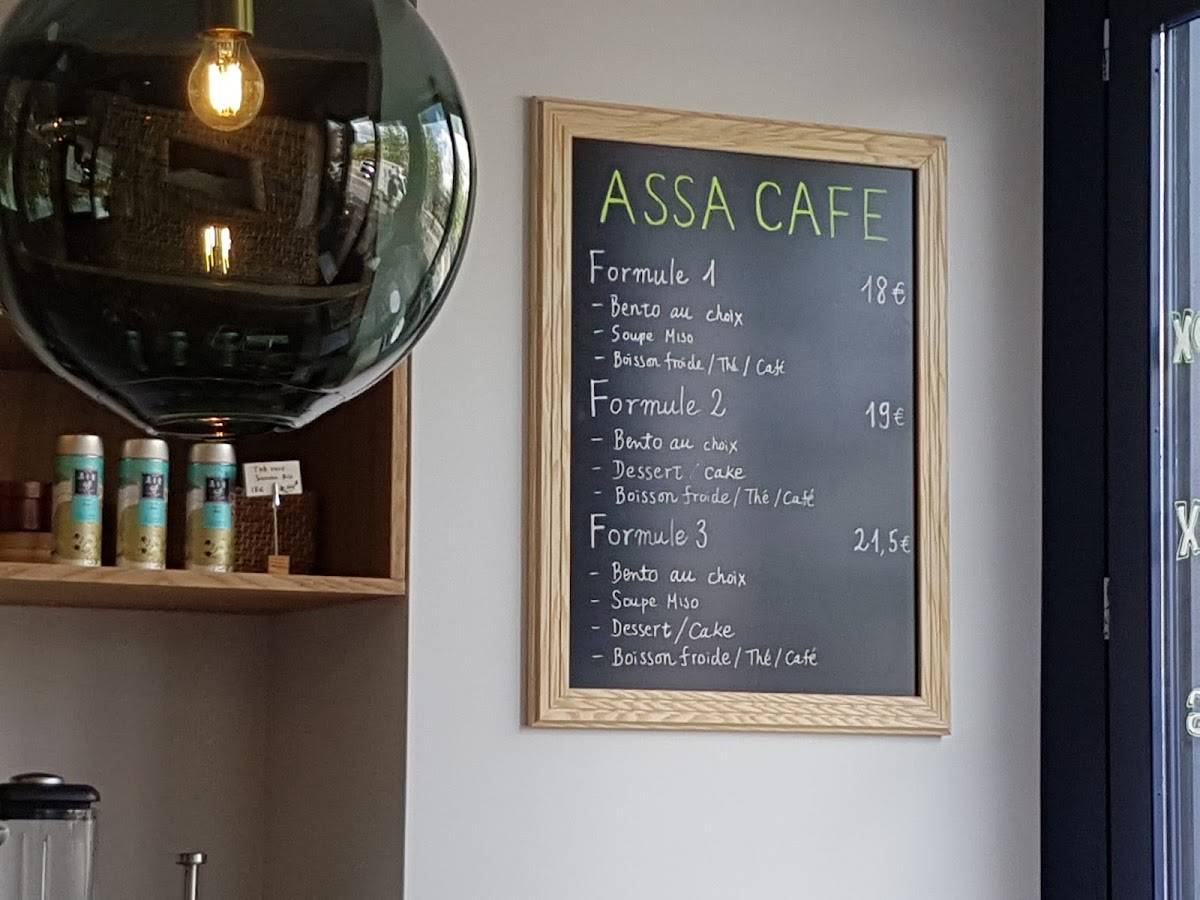 ASSA CAFE
Formule 1 18€
- Bento au choix
- Soupe Miso
- Boisson froide / Thé / Café
Formule 2 19€
- Bento au choix
- Dessert / cake
- Boisson froide / Thé / Café
Formule 3 21,5€
- Bento au choix
- Soupe Miso
- Dessert / Cake
- Boisson froide / Thé / Café